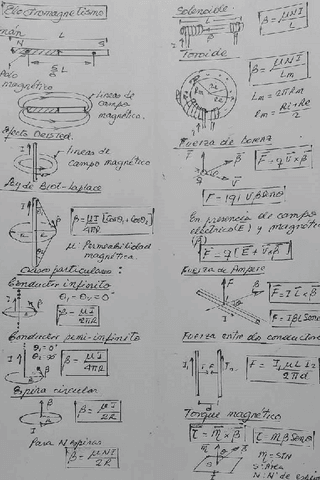 Electromagnetismo
Imán
L
N S
5/6 L
Polo
magnético
Líneas de
campo
magnético.
Efecto Oersted.
I
líneas de
campo magnético
Ley de Biot-Laplace
β = μI/4πR (cosθ₁ + cosθ₂)
μ: Permeabilidad
magnética.
Casos particulares:
Conductor infinito
θ₁ = θ₂ = 0°
β = μI/2πR
Conductor semi-infinito
θ₁ = 0°
β = μI/4πR
Espira circular
β = μI/2R
Para N espiras
β = μNI/2R
Solenoide
L
β = μNI/L
Toroide
β = μNI/Lm
Lm = 2πRm
Rm = Ri + Re/2
Fuerza de Lorenz
F = q V x β
F = |q| Vβ Senθ
En presencia de campo
eléctrico (E) y magnético
(β)
F = q(E + V x β)
Fuerza de Ampere
F = I L x β
F = IβL Senθ
Fuerza entre dos conductores
F = I₁ μ L I₂/2πd
Torque magnético
τ = m x β
τ = m β Senθ
m = SIN
S: Área
N: N° de espiras